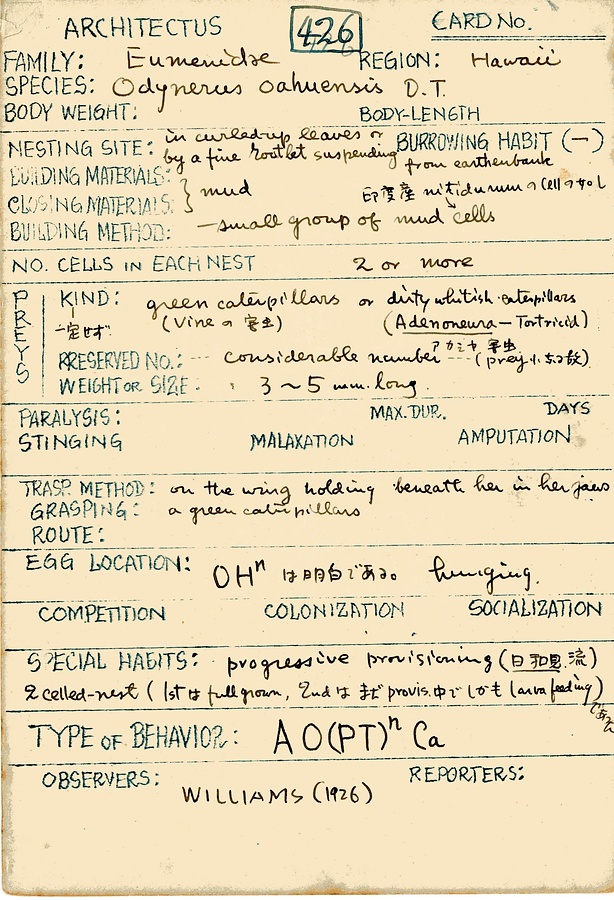 ARCHITECTUS 426 CARD NO.
FAMILY: Eumenidae REGION: Hawaii
SPECIES: Odynerus oahuensis D.T.
BODY WEIGHT: BODY-LENGTH
NESTING SITE: in curled-up leaves or by a fine rootlet suspending from earthenbank BURROWING HABIT (−)
BUILDING MATERIALS:
CLOSING MATERIALS: } mud
印度産 nitidurum の cell の
BUILDING METHOD: — small group of mud cells
NO. CELLS IN EACH NEST 2 or more
PREYS
KIND: green caterpillars or dirty whitish caterpillars
一定せず (Vine の 害虫) (Adenoneura — Tortricid)
アカミヤ 害虫
PRESERVED NO.: --- considerable number --- (prey小なる故)
WEIGHT OR SIZE: 3 ~ 5 mm. long.
PARALYSIS: MAX. DUR. DAYS
STINGING MALAXATION AMPUTATION
TRASP. METHOD: on the wing holding beneath her in her jaws
GRASPING: a green caterpillars
ROUTE:
EGG LOCATION: OHⁿ は明白である。 hunging.
COMPETITION COLONIZATION SOCIALIZATION
SPECIAL HABITS: progressive provisioning (日和見流)
2 celled-nest (1stは full grown, 2ndは まだ provis.中で しかも larva feeding)
TYPE OF BEHAVIOR: A O(PT)ⁿ Ca
OBSERVERS: REPORTERS:
WILLIAMS (1926)